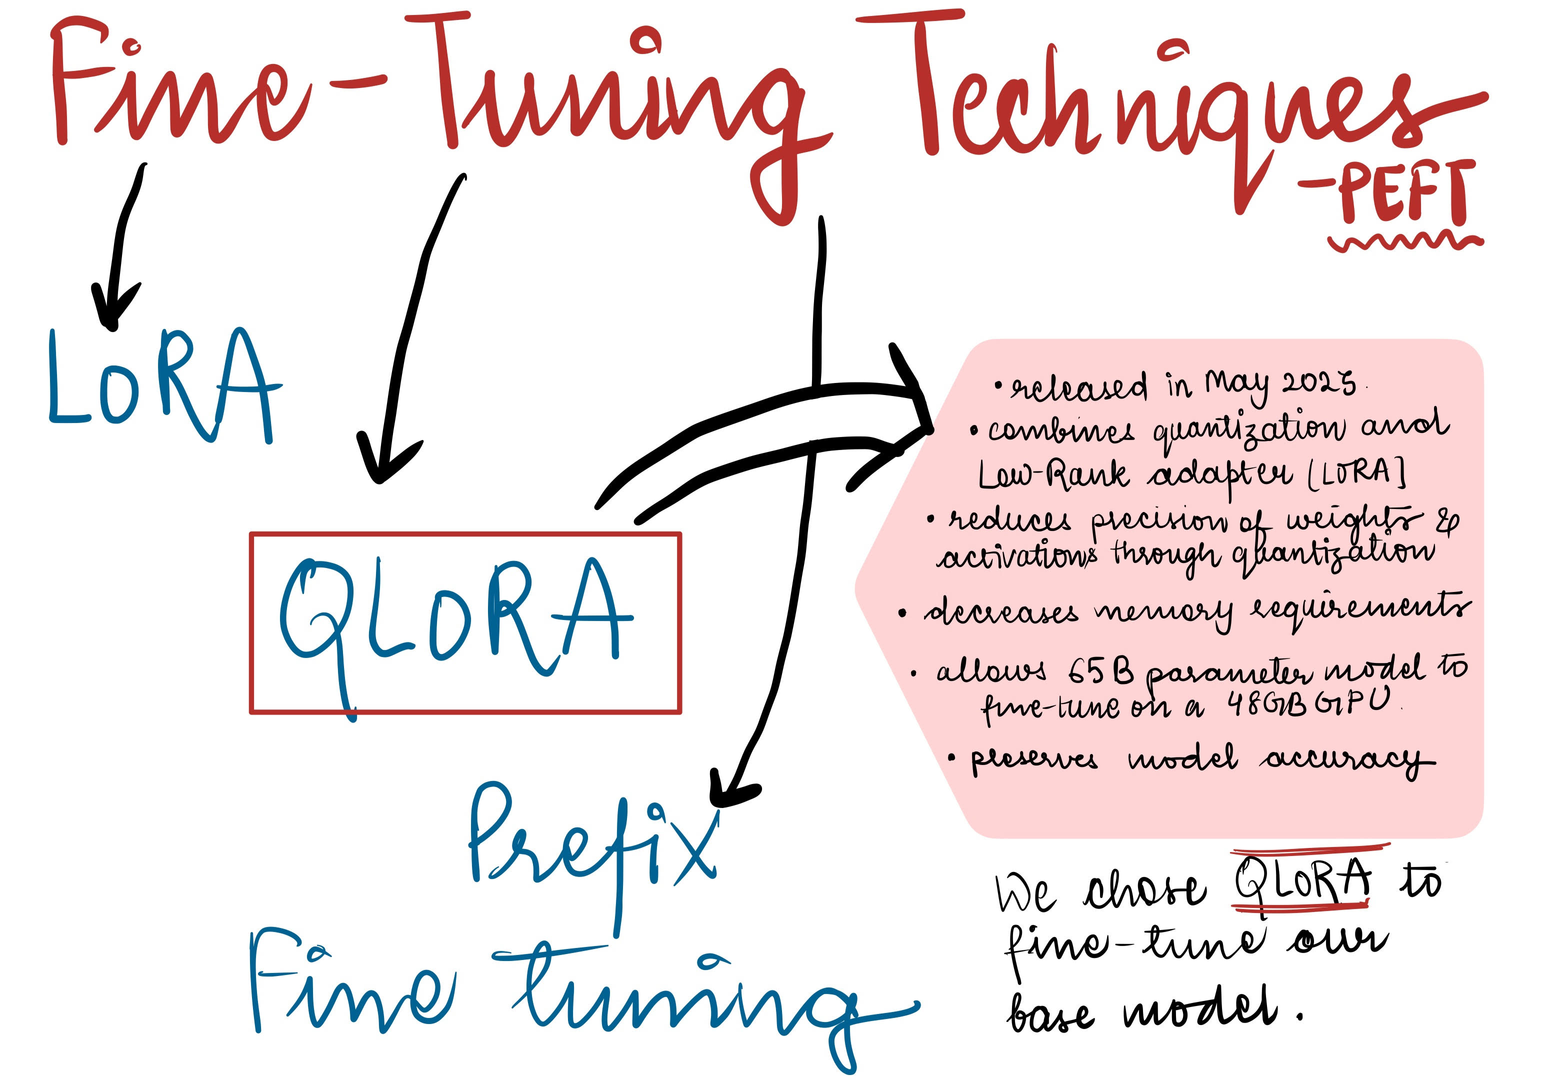 Fine-Tuning Techniques
-PEFT
LoRA
QLoRA
Prefix
Fine tuning
• released in May 2023.
• combines quantization and
Low-Rank adapter [LoRA]
• reduces precision of weights &
activations through quantization
• decreases memory requirements
• allows 65B parameter model to
fine-tune on a 48GB GPU.
• preserves model accuracy
We chose QLoRA to
fine-tune our
base model.